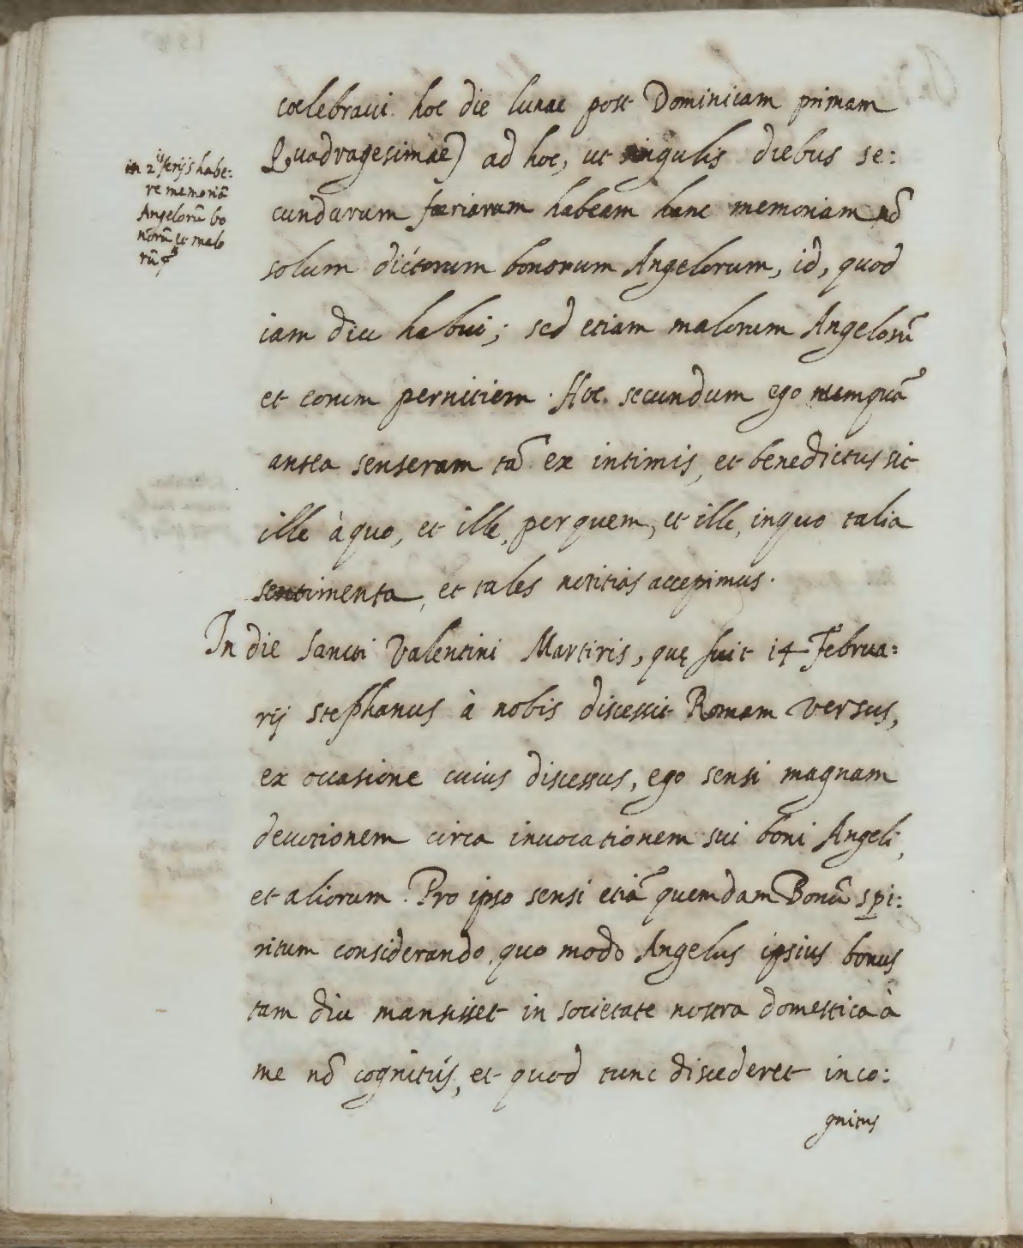 coelebravi hoc die lunae post Dominicam primam
Quadragesimae) ad hoc, ut singulis diebus se:
cundarum foeriarum habeam hanc memoriam nō
solum dictorum bonorum Angelorum, id, quod
iam diu habui; sed etiam malorum Angelorū
et eorum pernitiem. Hoc secundum ego nunquā
antea senseram tā ex intimis, et benedictus sit
ille à quo, et ille, per quem, et ille, in quo talia
sentimenta, et tales notitias accepimus.
In die Sancti Valentini Martiris, quę fuit 14 Februa:
rij stephanus à nobis discessit Romam versus,
ex occasione cuius discessus, ego sensi magnam
devotionem circa invocationem sui boni Angeli,
et aliorum. Pro ipso sensi etiā quemdam Bonū spi:
ritum considerando, quo modo Angelus ipsius bonus
tam diu mansisset in societate nostra domestica à
me nō cognitus, et quod tunc discederet inco:
gnitus
in 2is ferijs habe:
re memoriā
Angelorū bo
norū et malo
rū